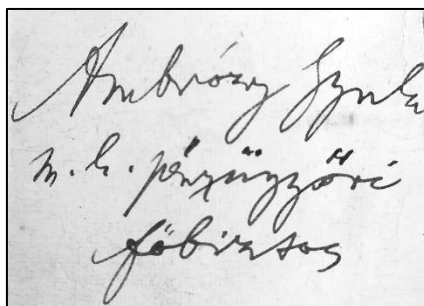 Ambrózy Gyula
m. k. pénzügyőri
főbiztos